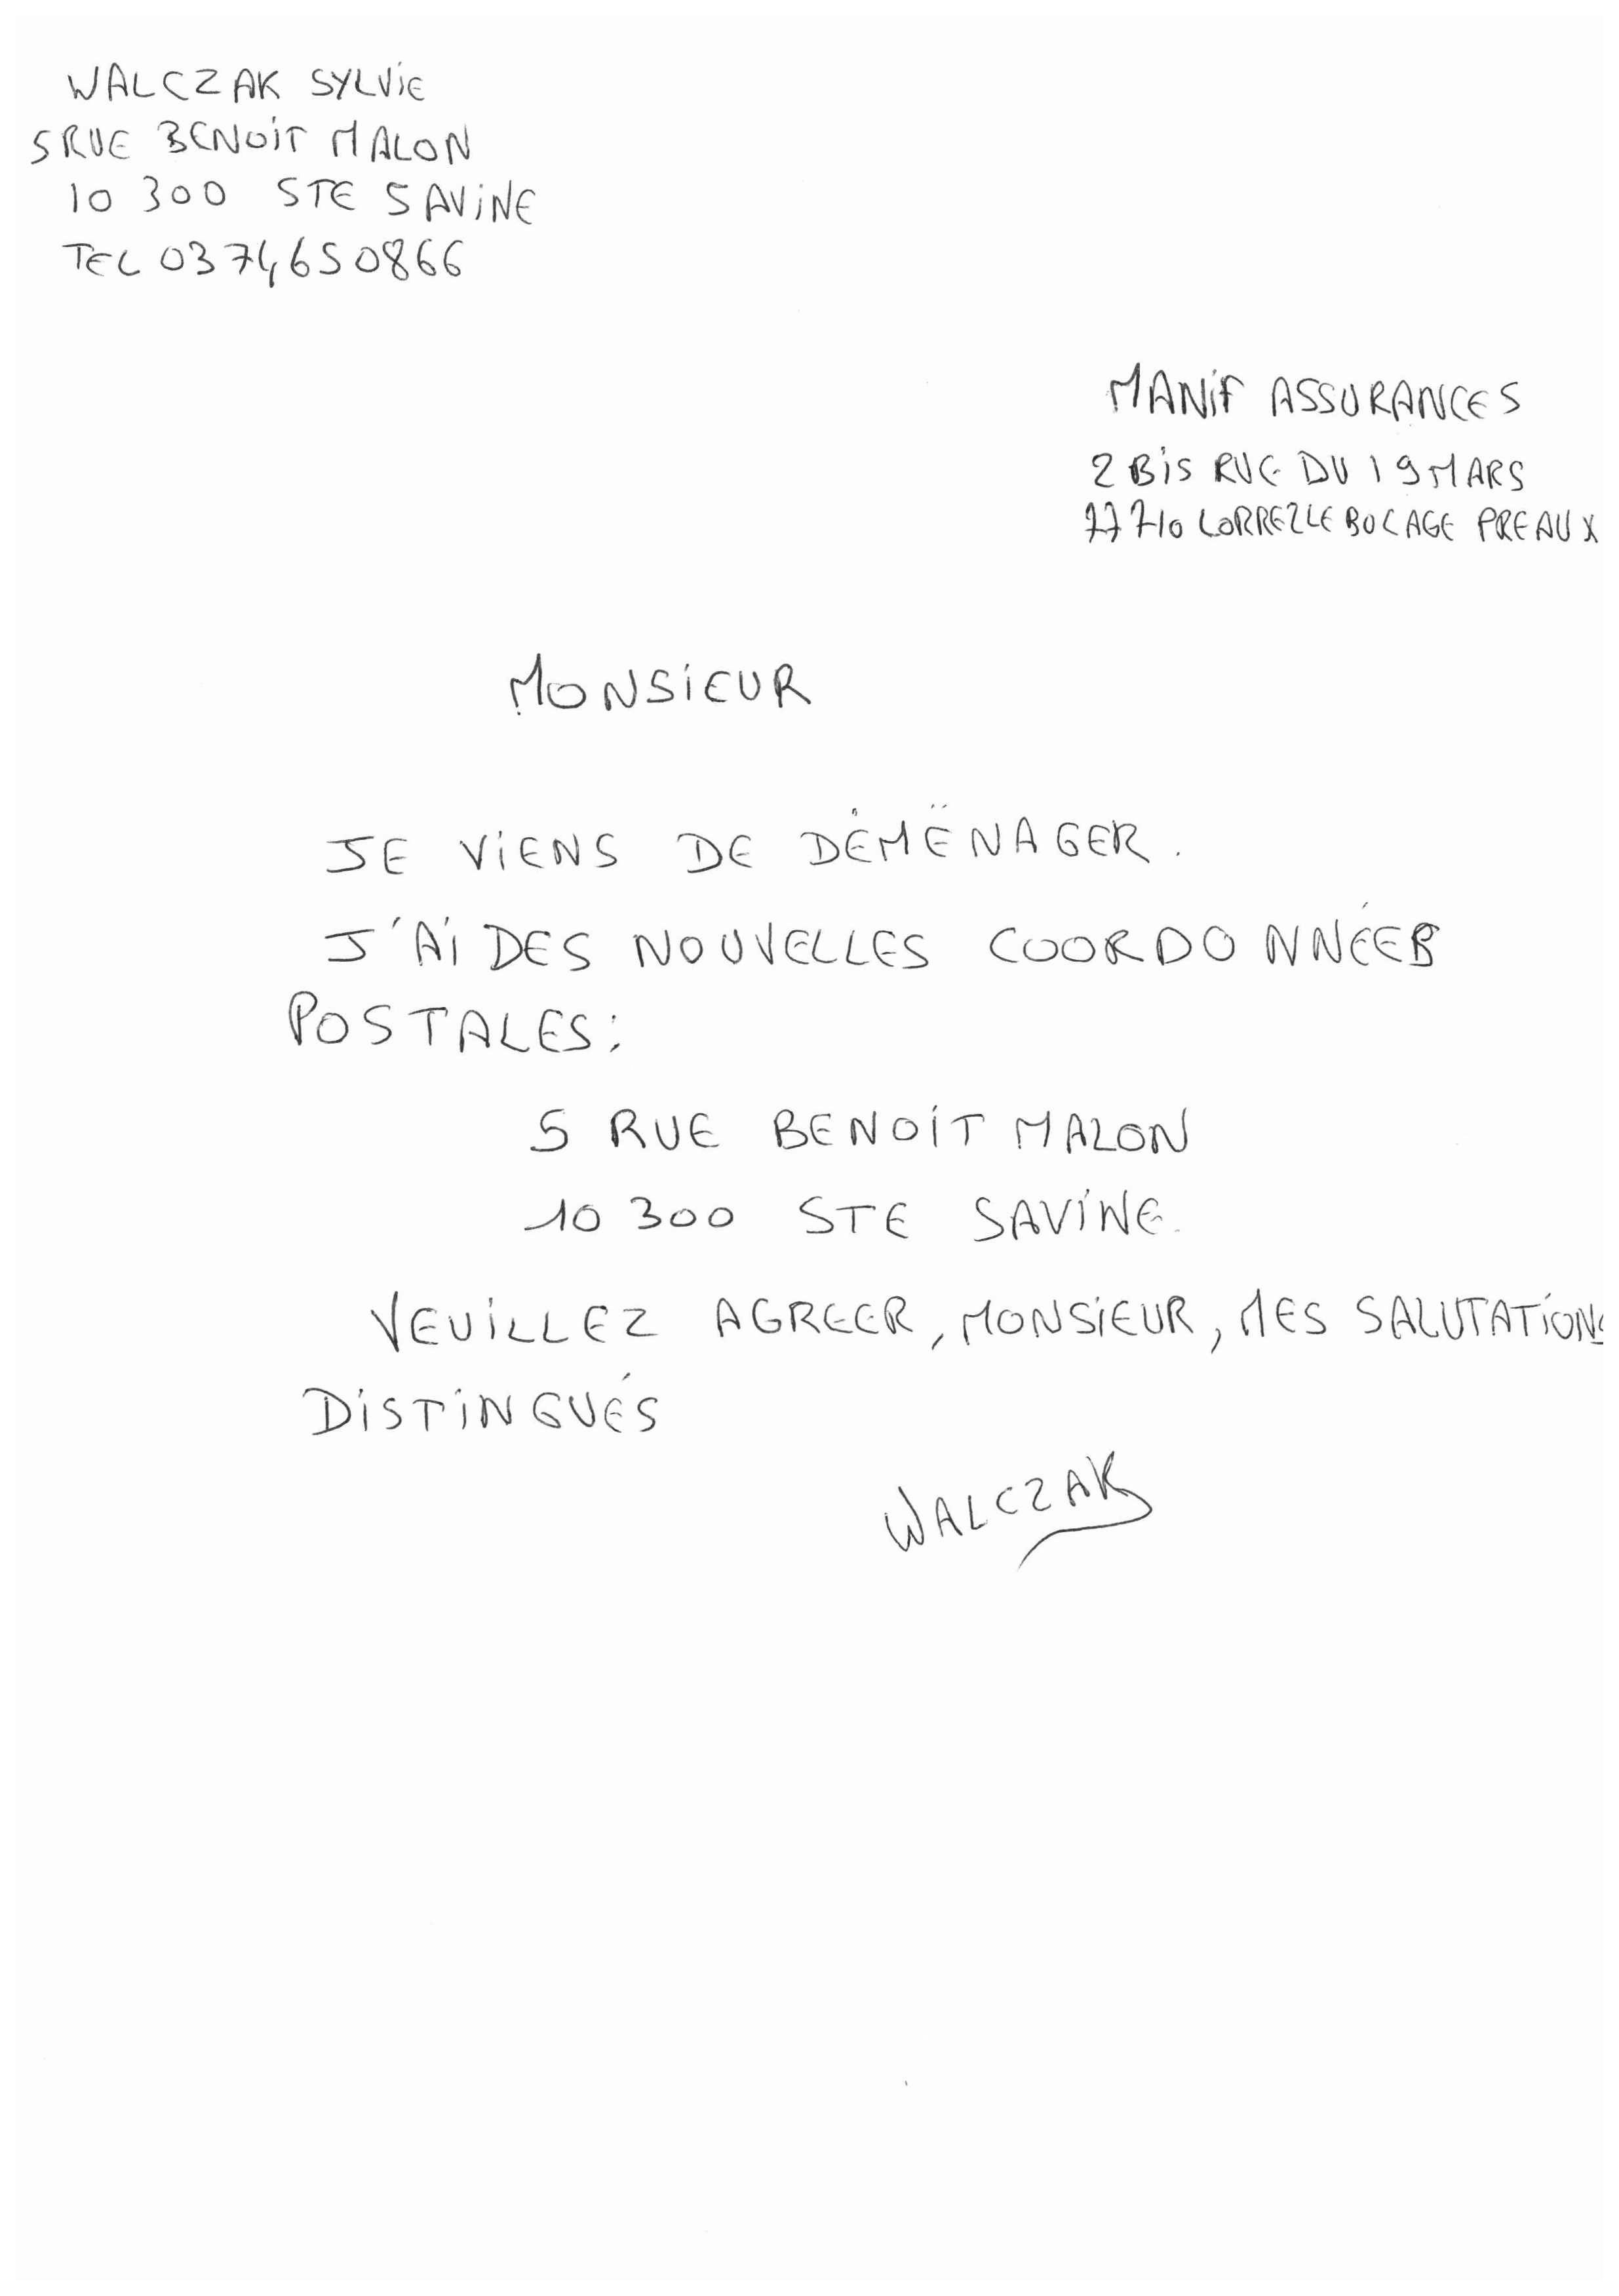 WALCZAK SYLVIE
5 RUE BENOIT MALON
10 300 STE SAVINE
TEL 0374650866
MANIF ASSURANCES
2 BIS RUE DU 19 MARS
77710 LORREZ LE BOCAGE PREAUX
MONSIEUR
JE VIENS DE DÉMËNAGER.
J'AI DES NOUVELLES COORDONNÉES
POSTALES:
5 RUE BENOIT MALON
10 300 STE SAVINE.
VEUILLEZ AGREER, MONSIEUR, MES SALUTATIONS
DISTINGUÉS
WALCZAK